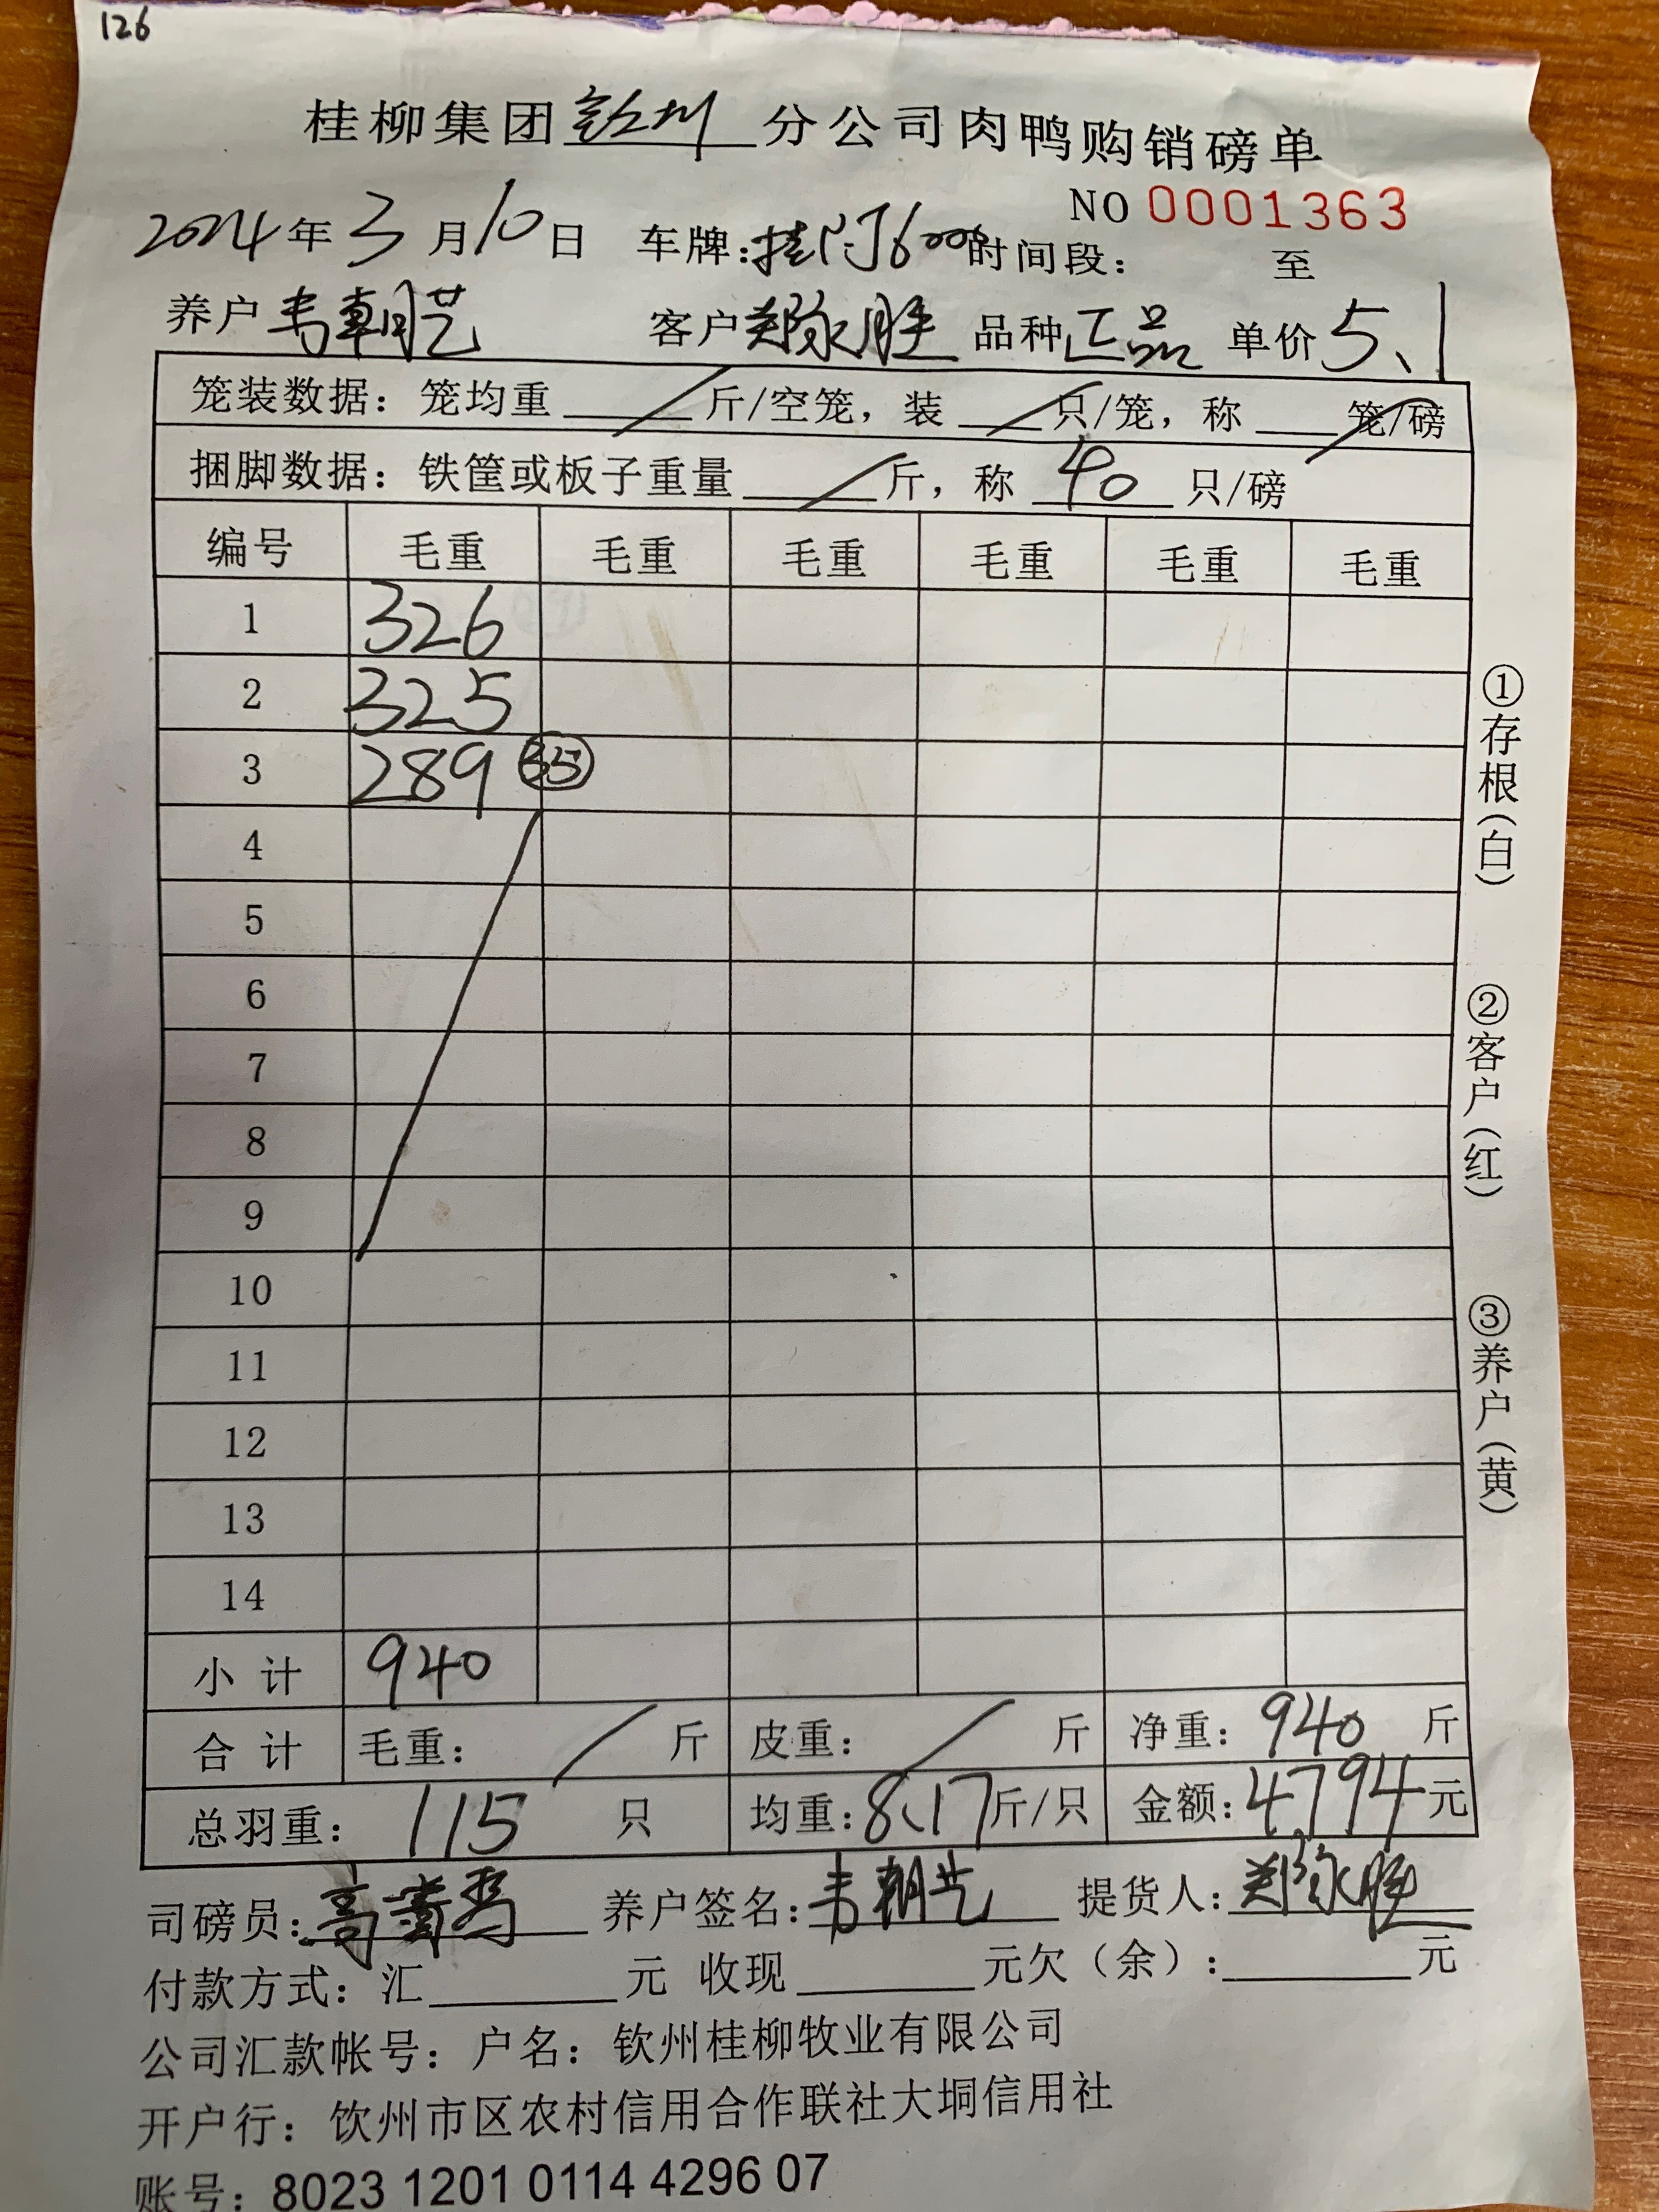 126
桂柳集团钦州分公司肉鸭购销磅单
NO 0001363
2024年3月10日 车牌:桂 6006 时间段: 至
养户 韦朝艺 客户 郑永胜 品种 正品 单价 5、1
笼装数据: 笼均重 斤/空笼, 装 只/笼, 称 笼/磅
捆脚数据: 铁筐或板子重量 斤, 称 40 只/磅
编号 毛重 毛重 毛重 毛重 毛重 毛重
1 326
2 325
3 289 35
4
5
6
7
8
9
10
11
12
13
14
小 计 940
合 计 毛重: 斤 皮重: 斤 净重: 940 斤
总羽重: 115 只 均重: 8、17 斤/只 金额: 4794 元
司磅员: 养户签名: 韦朝艺 提货人: 郑永胜
付款方式: 汇 元 收现 元欠(余): 元
公司汇款帐号: 户名: 钦州桂柳牧业有限公司
开户行: 饮州市区农村信用合作联社大垌信用社
账号: 8023 1201 0114 4296 07
①存根(白) ②客户(红) ③养户(黄)